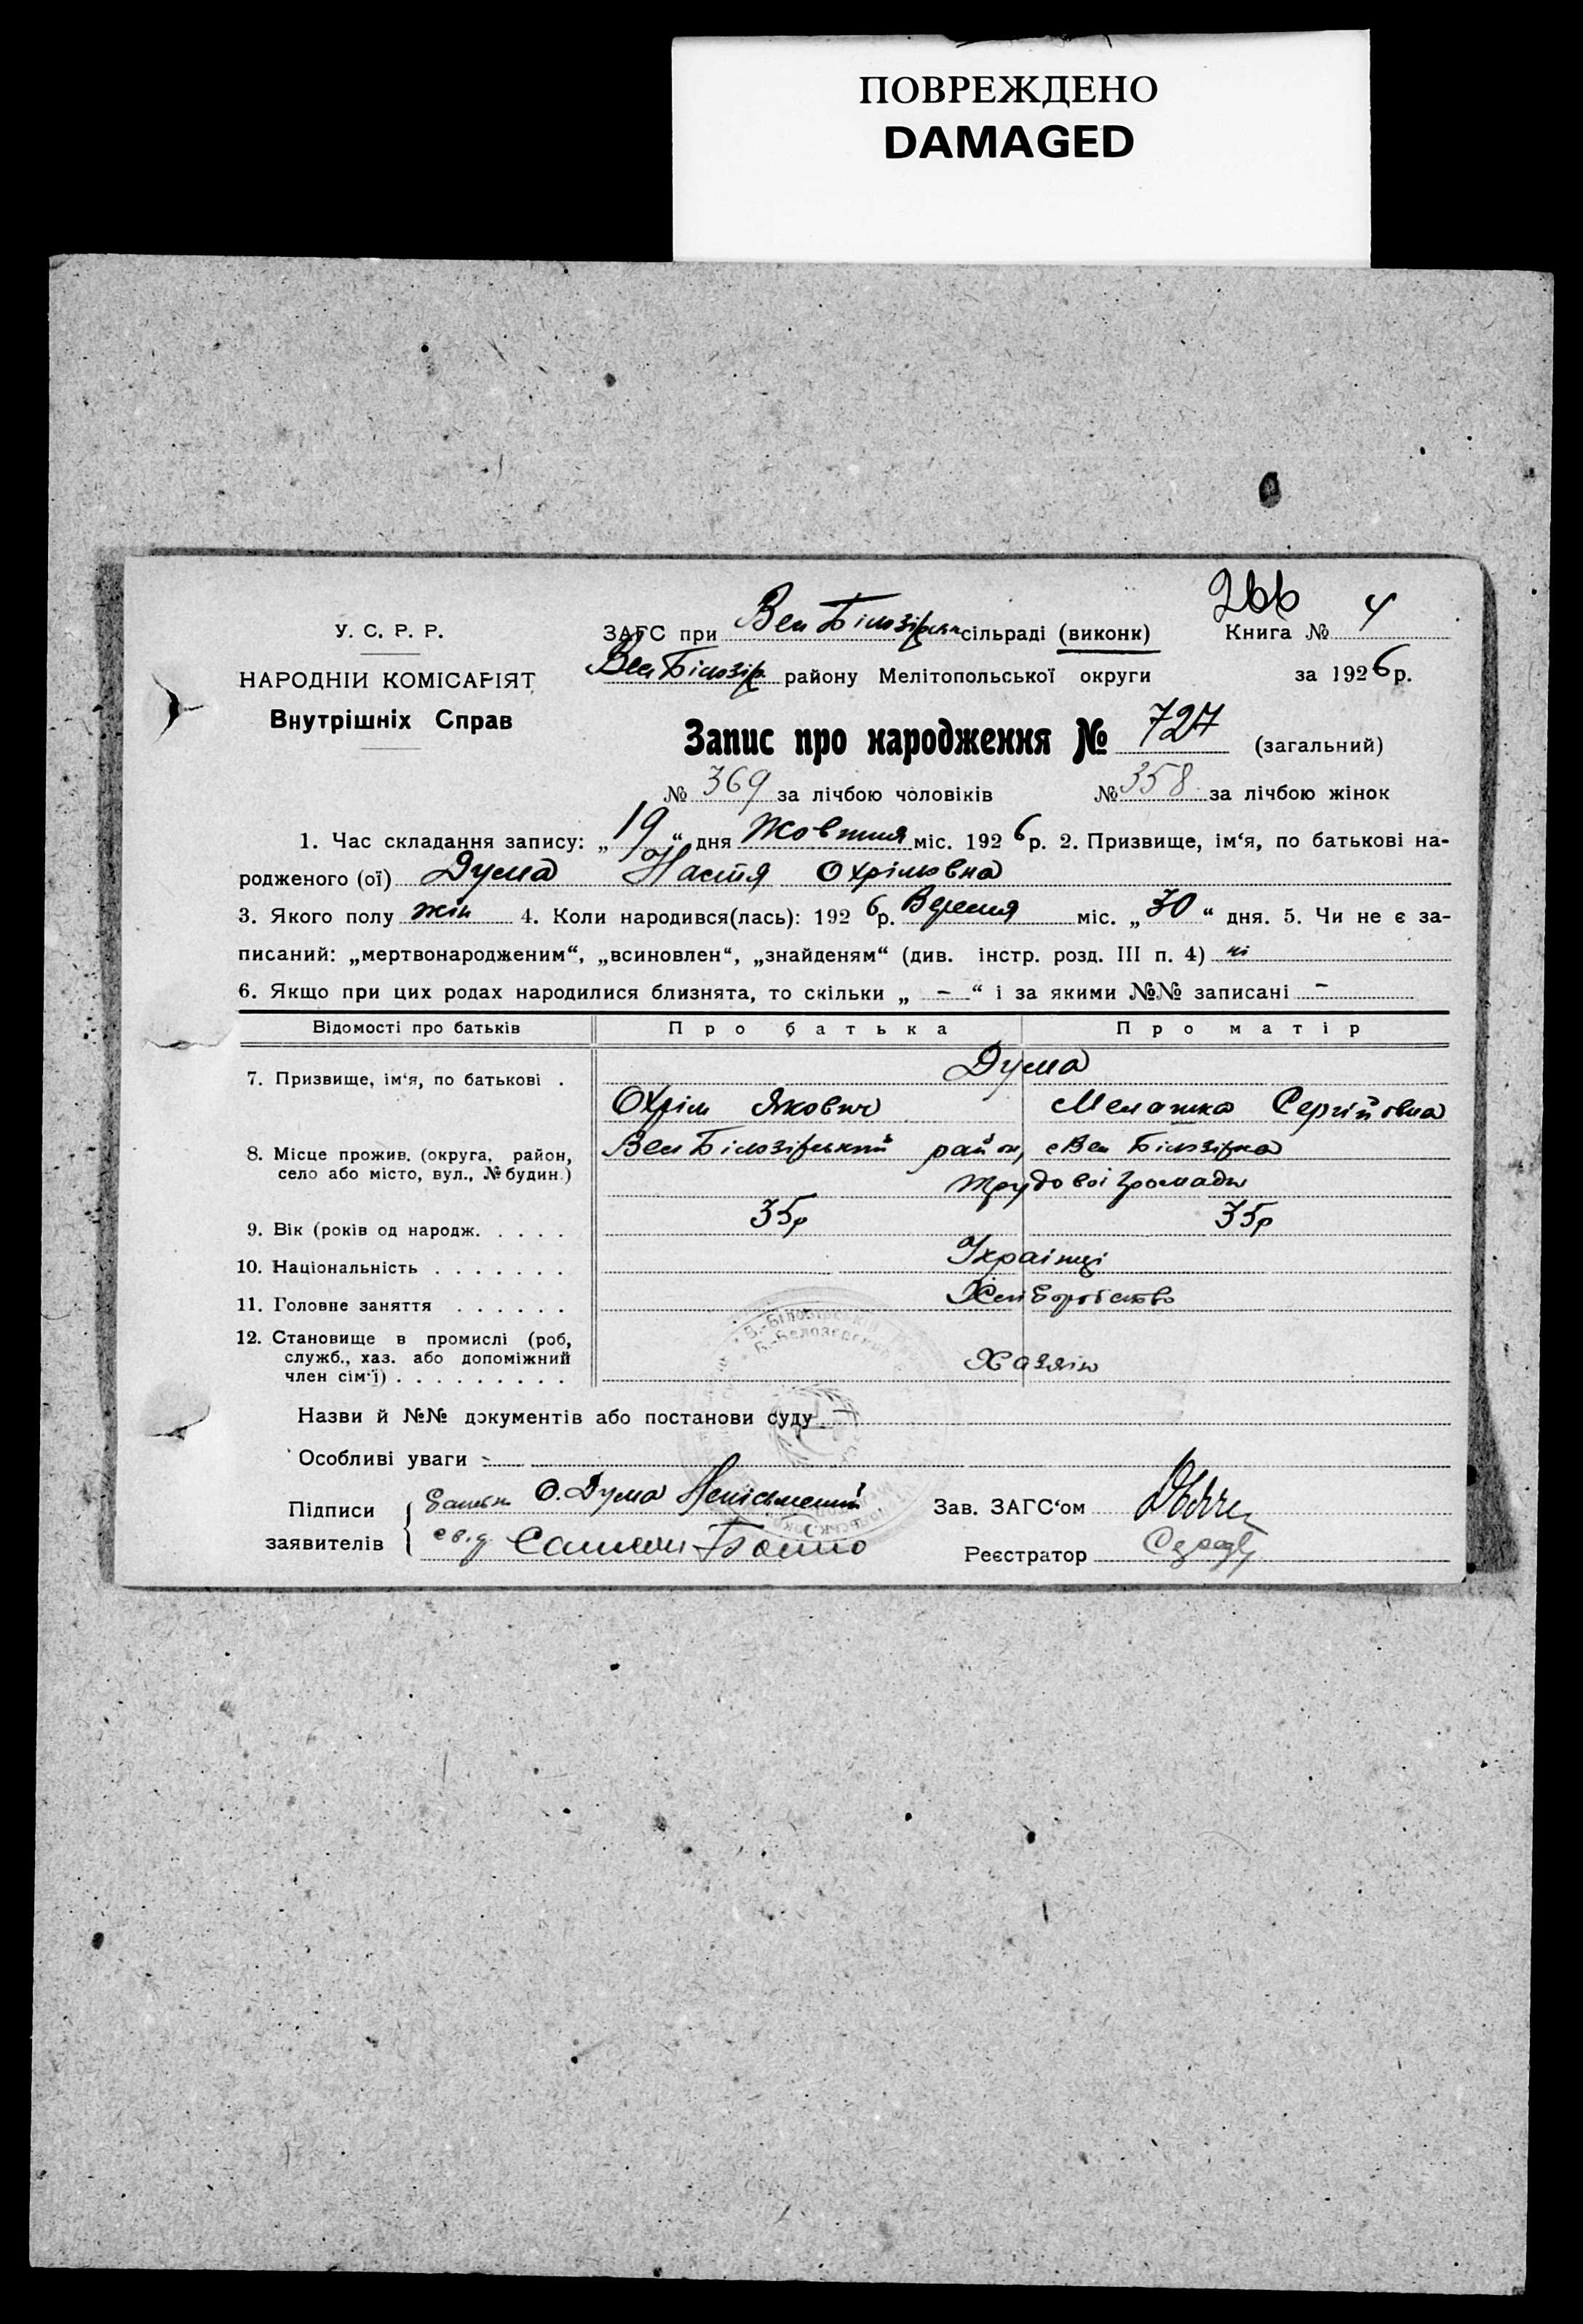 ПОВРЕЖДЕНО
DAMAGED
266
У. С. Р. Р.
ЗАГС при Вел Білозірськ сільраді (виконк) Книга № 4
НАРОДНІЙ КОМІСАРІЯТ Вел Білозір. району Мелітопольської округи за 1926 р.
Внутрішніх Справ
Запис про народження № 727 (загальний)
№ 369 за лічбою чоловіків № 358 за лічбою жінок
1. Час складання запису: „19“ дня Жовтня міс. 1926 р. 2. Призвище, ім‘я, по батькові на-
родженого (ої) Дума Настя Охрімовна
3. Якого полу жін 4. Коли народився(лась): 1926 р. Вересня міс. „30“ дня. 5. Чи не є за-
писаний: „мертвонародженим“, „всиновлен“, „знайденям“ (див. інстр. розд. III п. 4) ні
6. Якщо при цих родах народилися близнята, то скільки „ - “ і за якими №№ записані -
Відомості про батьків Про батька Про матір
7. Призвище, ім‘я, по батькові . Дума
Охрім Якович Мелашка Сергійовна
8. Місце прожив. (округа, район, село або місто, вул., № будин.) Вел Білозірський район, с Вел Білозірка
Трудової Громади
9. Вік (років од народж. . . . . 35р 35р
10. Національність . . . . . . . Українці
11. Головне заняття . . . . . . Хліборобство
12. Становище в промислі (роб,
служб., хаз. або допоміжний
член сім‘ї) . . . . . . . . . Хазяін
Назви й №№ документів або постанови суду -
Особливі уваги -
Підписи заявителів Батько О. Дума Неписьменний
Зав. ЗАГС‘ом
Реєстратор